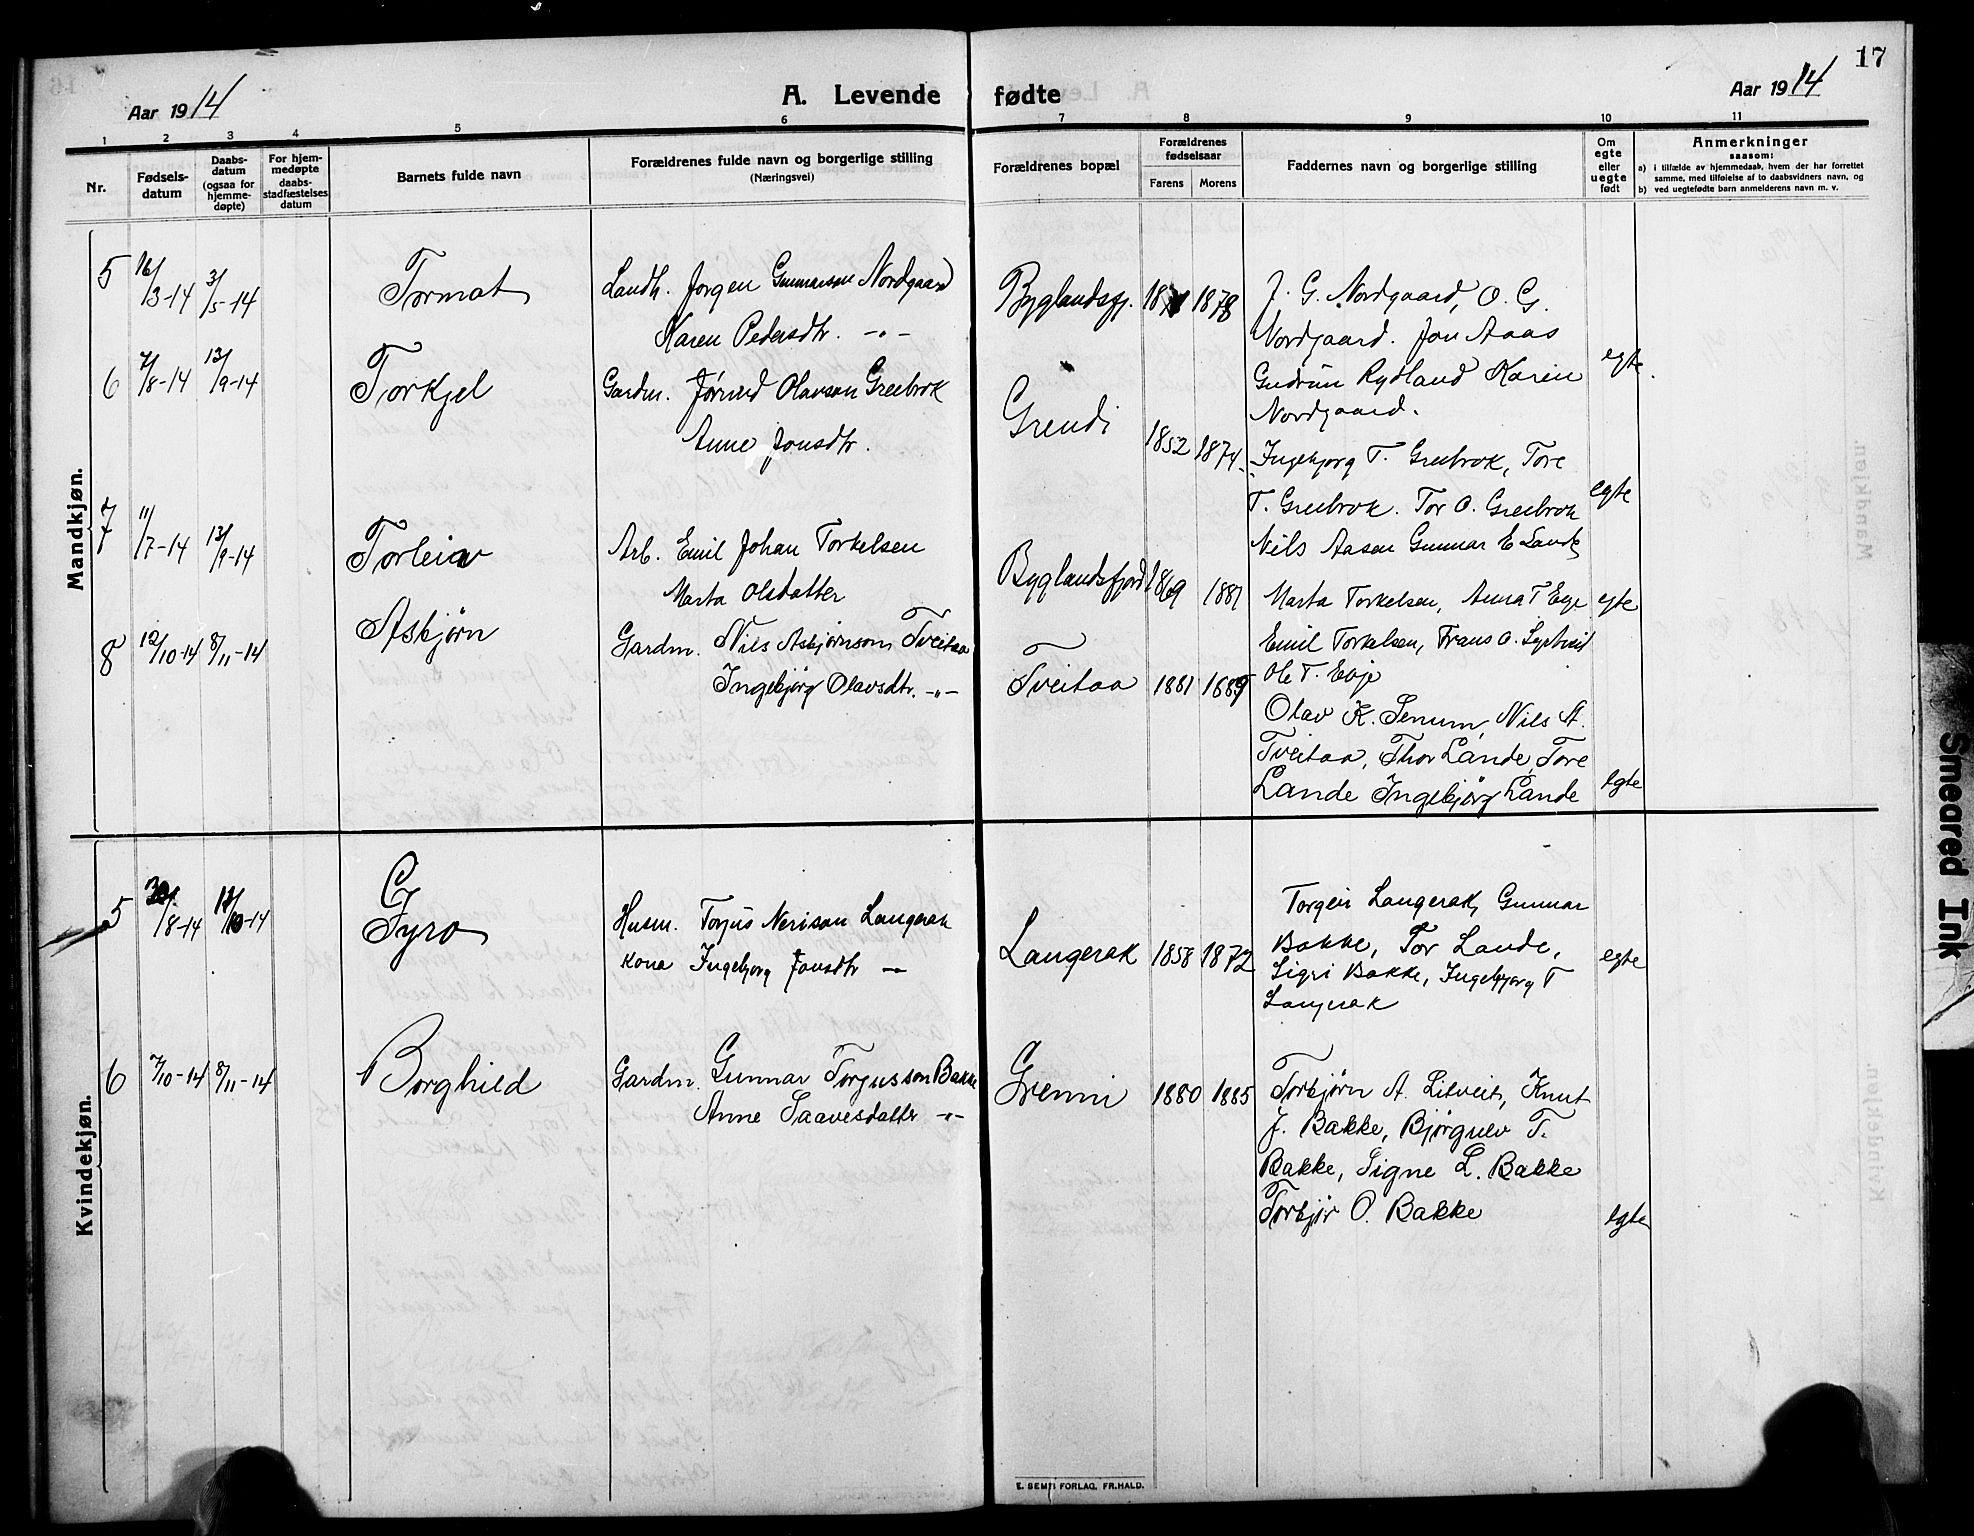 17
Aar 1914
A. Levende fødte
Aar 1914
1 2 3 4 5 6 7 8 9 10 11
Nr.
Fødsels-
datum
Daabs-
datum
(ogsaa for
hjemme-
døpte)
For hjem-
medøpte
daabs-
stadfæstelses
datum
Barnets fulde navn
Forældrenes fulde navn og borgerlige stilling
(Næringsvei)
Forældrenes bopæl
Forældrenes
fødselsaar
Farens Morens
Faddernes navn og borgerlige stilling
Om
egte
eller
uegte
født
Anmerkninger
saasom:
a) i tilfælde av hjemmedaab, hvem der har forrettet
samme, med tilføielse af to daabsvidners navn, og
b) ved uegtefødt barn anmelderens navn m. v.
Mandkjøn.
5 16/3-14 3/5-14 Tormot
Landh. Jorgen Gunnarson Nordgaard
Karen Pedersdtr. -"-
Byglandsfj. 1878
J. G. Nordgaard, O. G.
Nordgaard. Jon Aaas
Gudrun Rydland Karen
Nordgaard.
egte
6 7/8-14 13/9-14 Torkjel
Gardm. Olavson Greibrok
Anne Jonsdtr.
Grendi 1852 1874
Ingebjorg T. Greibrok, Tore
T. Greibrok. Tor O. Greibrok
Nils Aasen Gunnar E Lande
egte
7 11/7-14 13/9-14 Torleiv
Arb. Emil Johan Torkelsen
Marta Olsdatter
Byglandsfjord 1869 1881
Marta Torkelsen, Anna T Evje
Emil Torkelsen, Frans O.
Ole T. Evje
egte
8 12/10-14 8/11-14 Asbjørn
Gardm. Nils Asbjørnson Tveitaa
Ingebjørg Olavsdtr. -"-
Tveitaa 1881 1889
Olav K. Senum, Nils A.
Tveitaa, Thor Lande, Tore
Lande Ingebjørg Lande
egte
Kvindekjøn.
5 /8-14 /10-14 Gyro
Husm. Torjus Nerison Langerak
Kona Ingebjorg Jonsdtr -"-
Langerak 1858 1872
Torgeir Langerak, Gunnar
Bakke, Tor Lande,
Sigri Bakke, Ingebjorg T
Langerak
egte
6 7/10-14 8/11-14 Borghild
Gardm. Gunnar Torgusson Bakke
Anne Saavesdatter -"-
Grenni 1880 1885
Torbjørn A. Litveit, Knut
J. Bakke, Bjørgulv T.
Bakke, Signe L. Bakke
Torbjør O. Bakke
egte
E. SEM'S FORLAG, FR.HALD.
Smeared Ink